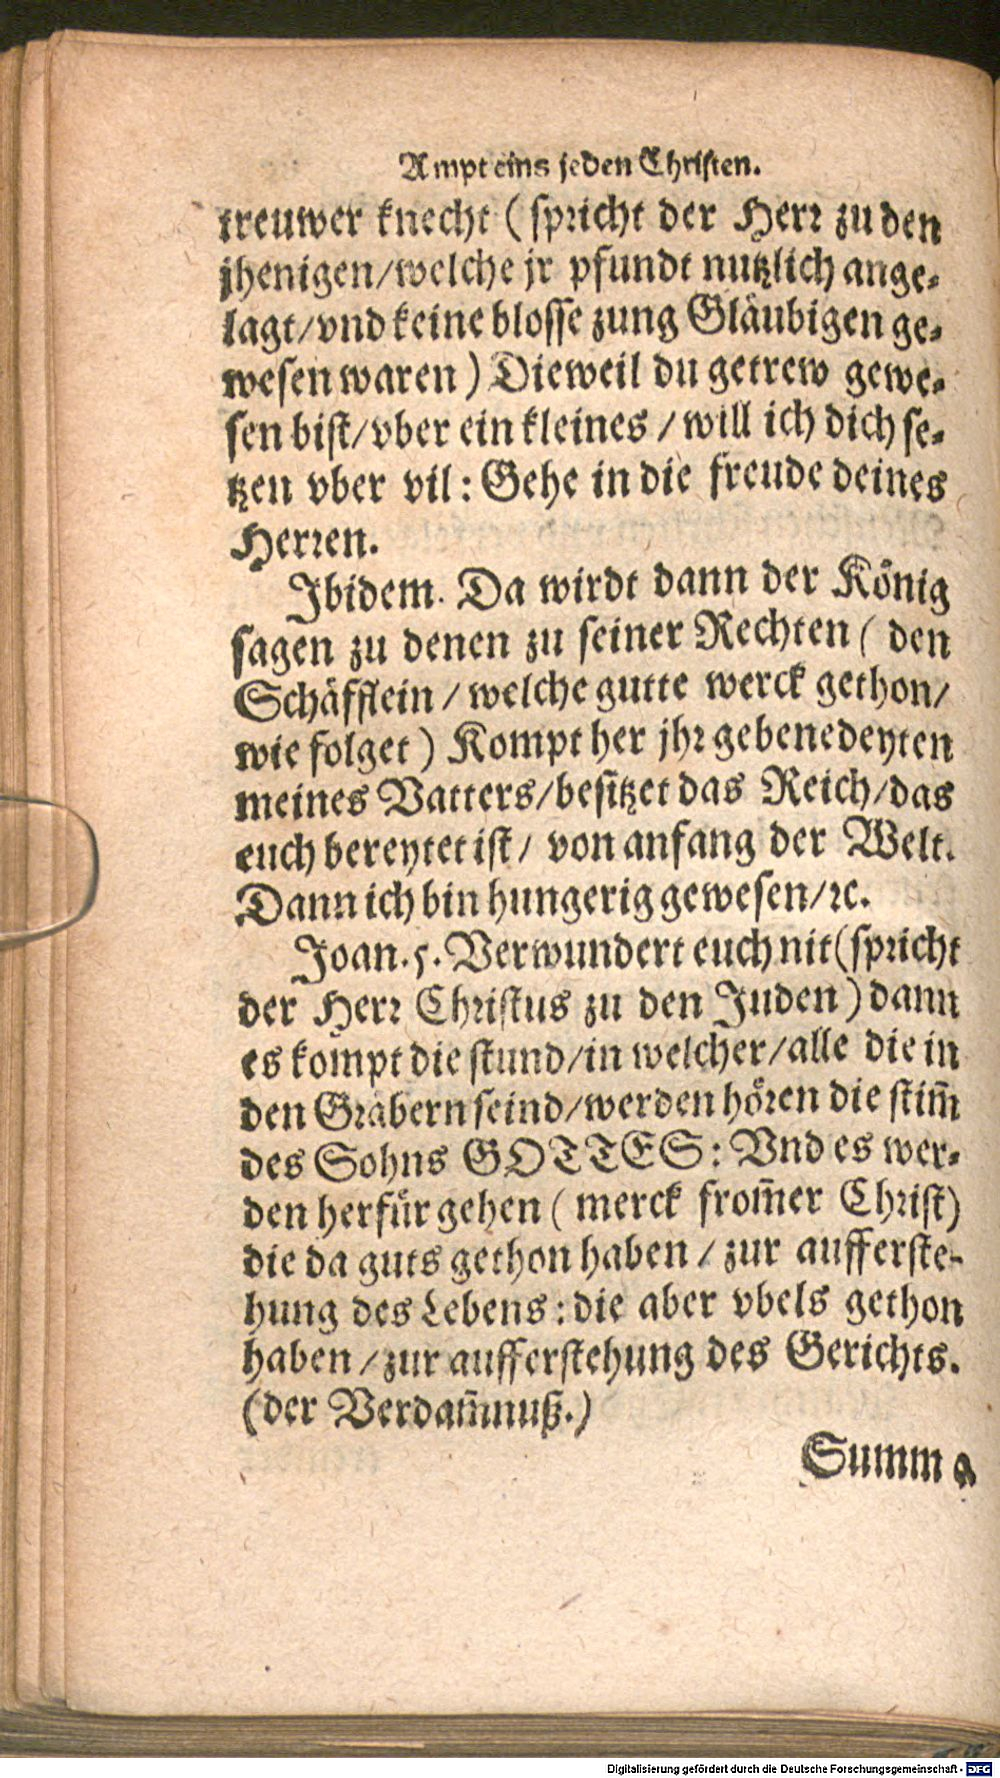 Ampt eins jeden Christen.
treuwer knecht (spricht der Herr zu den
jhenigen/welche jr pfundt nutzlich ange-
lagt/vnd keine blosse zung Gläubigen ge-
wesen waren) Dieweil du getrew gewe-
sen bist/vber ein kleines/will ich dich se-
tzen vber vil: Gehe in die freude deines
Herren.
Ibidem. Da wirdt dann der König
sagen zu denen zu seiner Rechten (den
Schäfflein/welche gutte werck gethon/
wie folget) Kompt her jhr gebenedeyten
meines Vatters/besitzet das Reich/das
euch bereytet ist/von anfang der Welt.
Dann ich bin hungerig gewesen/ꝛc.
Joan. 5. Verwundert euch nit (spricht
der Herr Christus zu den Juden) dann
es kompt die stund/in welcher/alle die in
den Gräbern seind/werden hören die stim̃
des Sohns GOTTES: Vnd es wer-
den herfür gehen (merck from̃er Christ)
die da guts gethon haben/zur aufferste-
hung des Lebens: die aber vbels gethon
haben/zur aufferstehung des Gerichts.
(der Verdam̃nuß.)
Summa
Digitalisierung gefördert durch die Deutsche Forschungsgemeinschaft - DFG